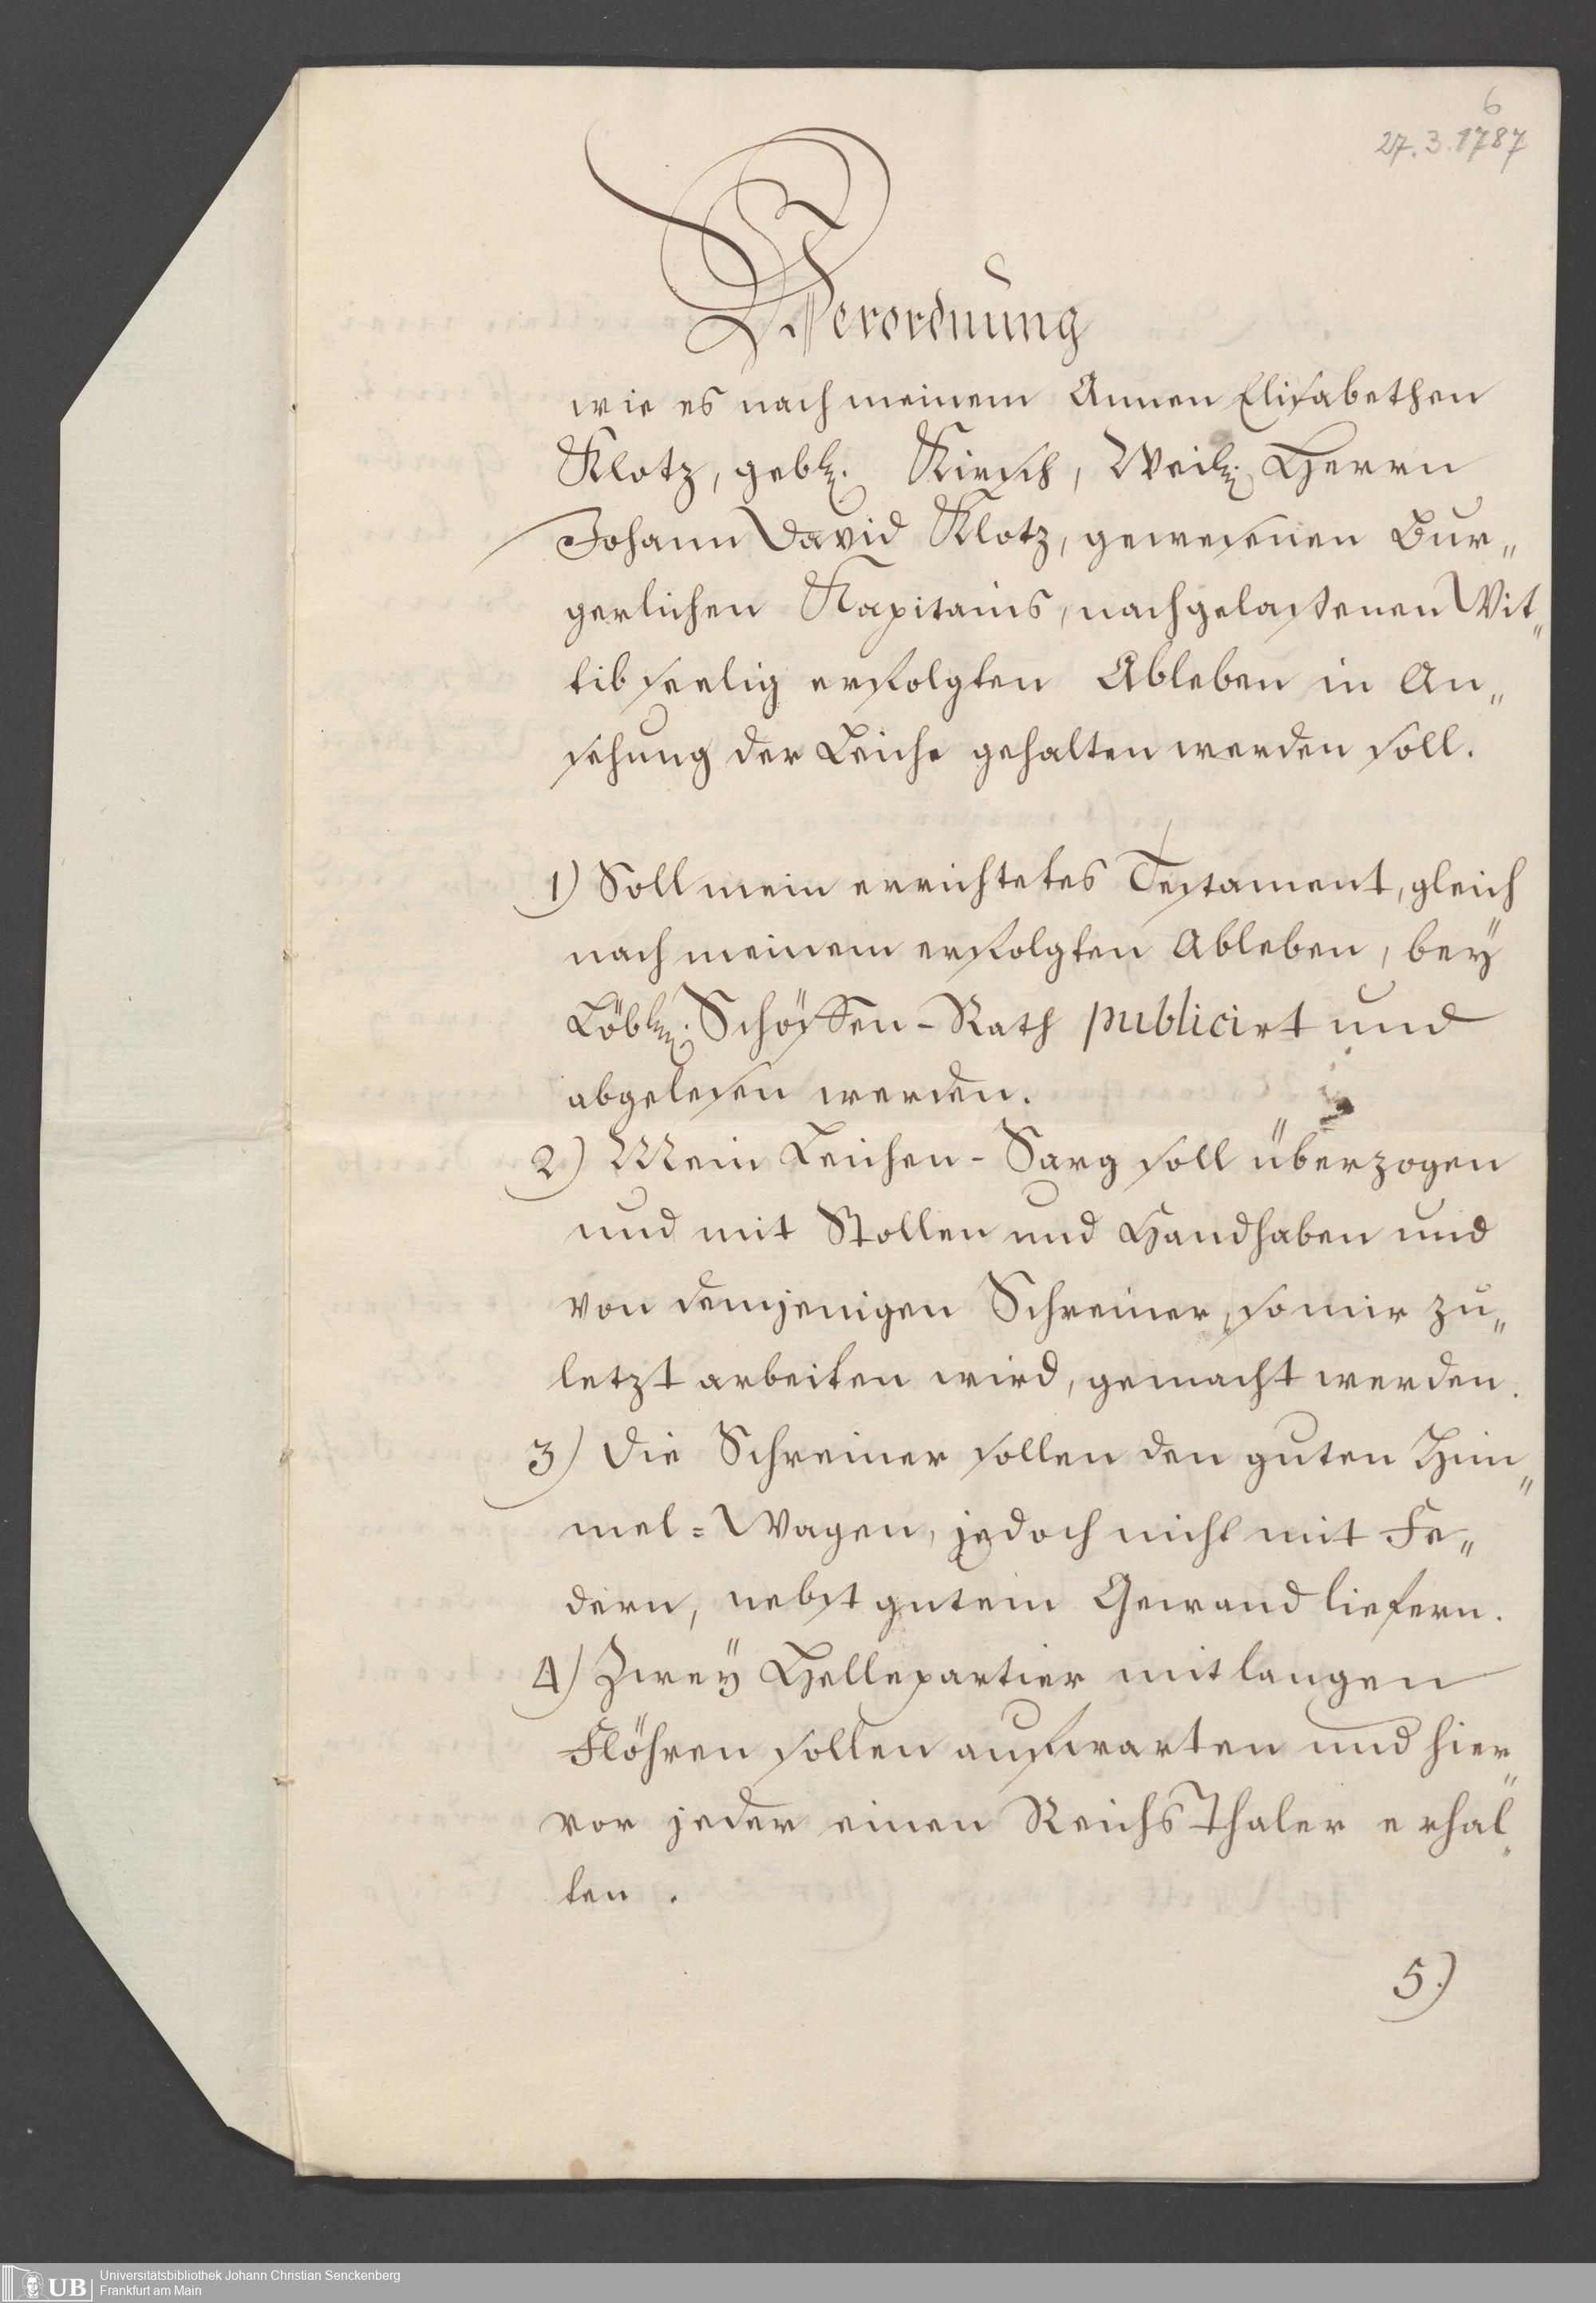 6
27.3.1787
Verordnung
wie es nach meinem Annen Elisabethen
Klotz, gebl. Kirsch, Weil. Herrn
Johann David Klotz, gewesenen Bur„
gerlichen Kapitains, nachgelassenen Wit„
tib seelig erfolgten Ableben in An„
sehung der Leiche gehalten werden soll.
1) Soll mein errichtetes Testament, gleich
nach meinem erfolgten Ableben, beÿ
Löbl. Schöffen-Rath publicirt und
abgelesen werden.
2) Mein Leichen-Sarg soll überzogen
und mit Stollen und Handhaben und
von demjenigen Schreiner, so mir zu„
letzt arbeiten wird, gemacht werden.
3) Die Schreiner sollen den guten Him„
mel=Wagen, jedoch nicht mit Fe„
dern, nebst gutem Gewand liefern.
4) Zweÿ Hellepartier mit langen
Flöhren sollen aufwarten und hier„
vor jeder einen Reichs Thaler erhal„
ten.
5.)
UB
Universitätsbibliothek Johann Christian Senckenberg
Frankfurt am Main